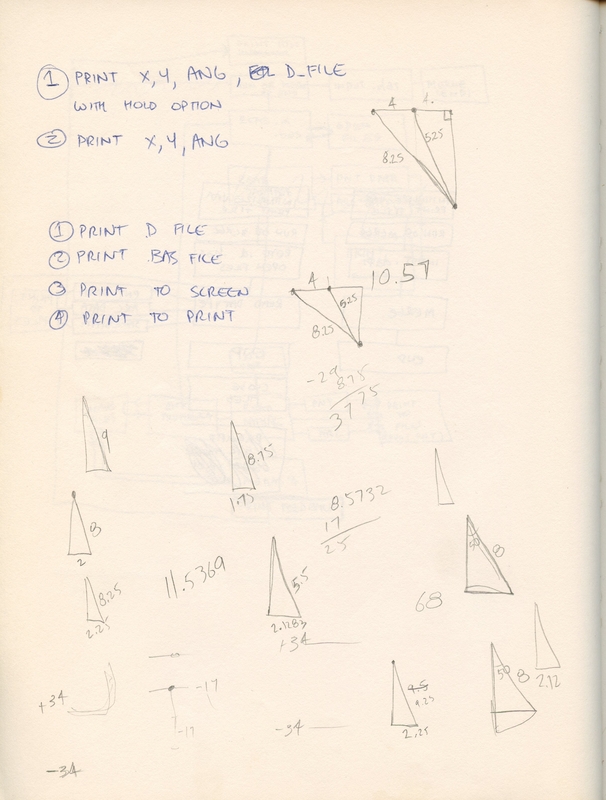 ① PRINT X,Y, ANG, D_FILE
WITH HOLD OPTION
② PRINT X,Y, ANG
4 4.
5.25
8.25
① PRINT D FILE
② PRINT .BAS FILE
③ PRINT TO SCREEN
④ PRINT TO PRINT
4
5.25
8.25
10.57
-29
875
3775
9
8.75
1.75
8
2
8.5732
17
25
50 8
8.25
2.25
11.5369
5.5
2.1283
68
+34
2.12
50 8
+34
-17
-17
9.5
9.25
2.25
-34
-34